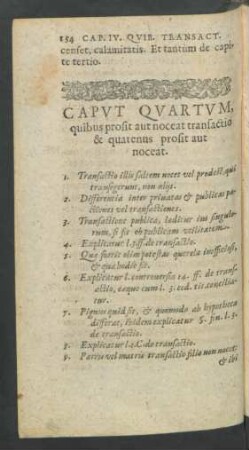 154 CAP. IV. QVIB. TRANSACT.
censet, calamitatis. Et tantum de capi-
te tertio.
CAPVT QVARTVM,
quibus prosit aut noceat transactio
& quatenus prosit aut
noceat.
1. Transactio illis saltem nocet vel prodest, qui
transegerunt, non alijs.
2. Differentia inter priuatas & publicas pa-
ctiones vel transactiones.
3. Transactione publica, laeditur ius singulo-
rum, si fit ob publicam vtilitatem.
4. Explicatur l. 3. ff. de transactio.
5. Quae fuerit olim potestas querela inofficiosi,
& qua hodie sit.
6. Explicatur l. controuersia 14. ff. de transa-
ctio, eaque cum l. 3. eod. tit. concilia-
tur.
7. Pignus quid sit, & quomodo ab hypotheca
differat, ibidem explicatur §. fin. l. 3.
de transactio.
8. Explicatur l. 4. C. de transactio.
9. Patris vel matris transactio filio non nocet:
& ibi